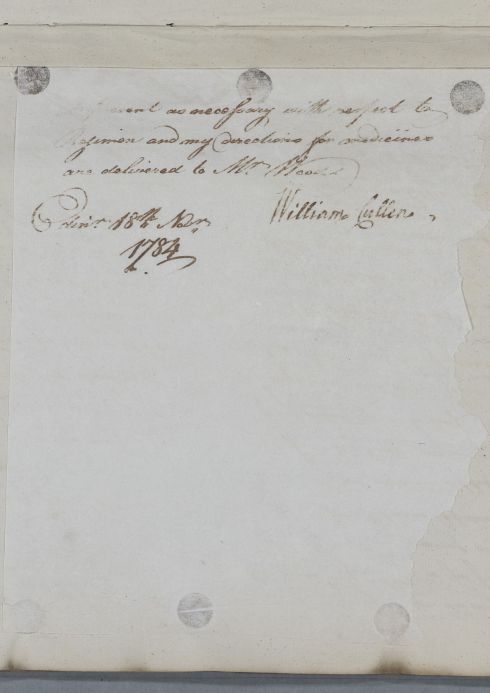 as necessary with respect to
Regimen and my directions for medicines
are delivered to Mr. Wood
Edinr. 18th Novr. William Cullen
1784